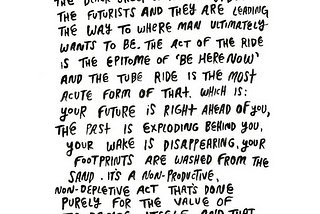 THE FUTURISTS AND THEY ARE LEADING
THE WAY TO WHERE MAN ULTIMATELY
WANTS TO BE. THE ACT OF THE RIDE
IS THE EPITOME OF 'BE HERE NOW'
AND THE TUBE RIDE IS THE MOST
ACUTE FORM OF THAT. WHICH IS:
YOUR FUTURE IS RIGHT AHEAD OF YOU,
THE PAST IS EXPLODING BEHIND YOU,
YOUR WAKE IS DISAPPEARING, YOUR
FOOTPRINTS ARE WASHED FROM THE
SAND. IT'S A NON-PRODUCTIVE,
NON-DEPLETIVE ACT THAT'S DONE
PURELY FOR THE VALUE OF
ITSELF AND THAT